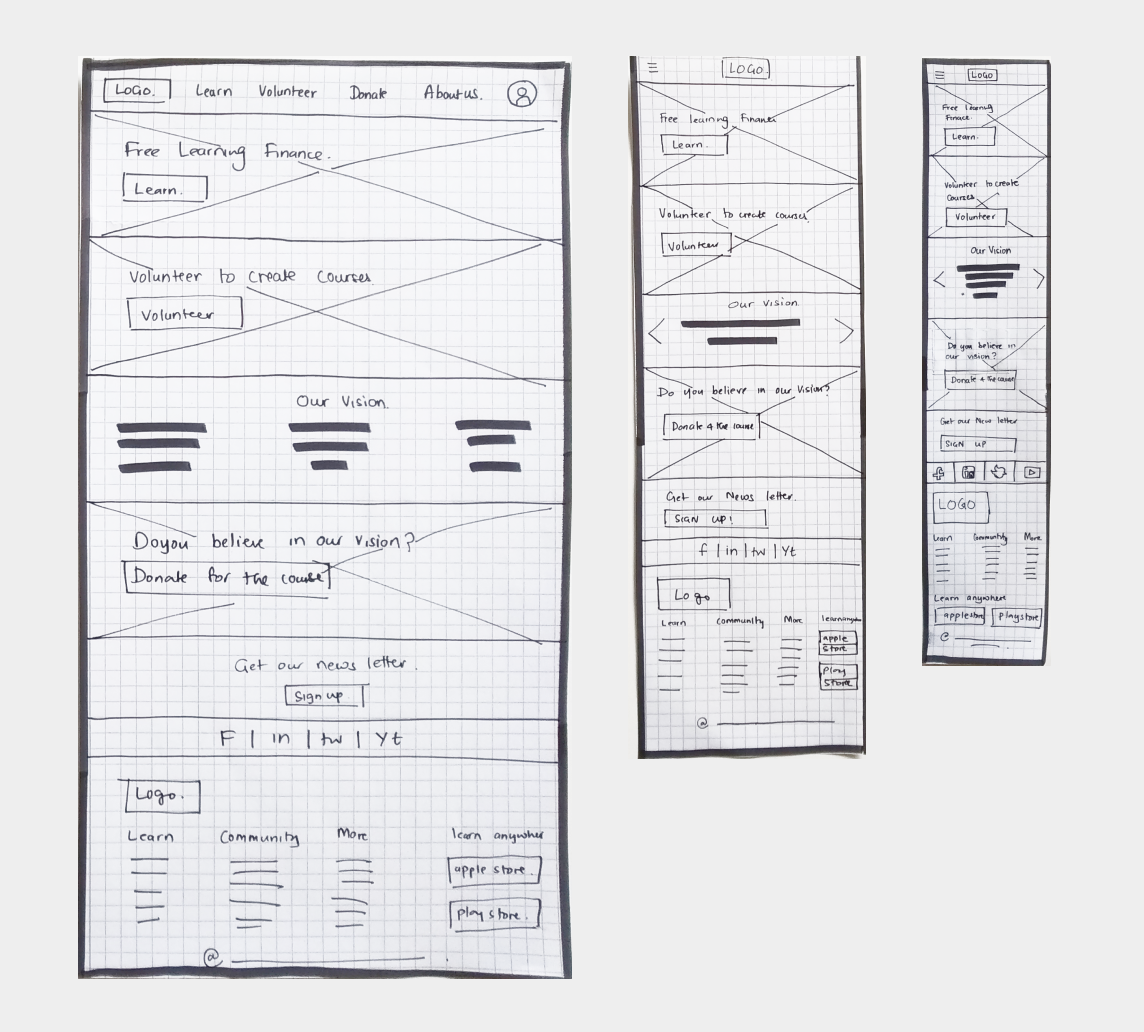 LOGO.
Learn
Volunteer
Donate
About us.
Free Learning Finance.
Learn.
Volunteer to create courses
Volunteer
Our Vision.
Do you believe in our vision?
Donate for the course
Get our news letter.
Sign up
F | in | tw | Yt
Logo.
Learn
Community
More
learn anywher
apple store.
play store.
@
LOGO.
Free learning Finance
Learn.
Volunteer to create courses.
Volunteer
Our vision
Do you believe in our Vision?
Donate 4 the course
Get our News letter.
SIGN UP!
f | in | tw | Yt
Logo
Learn
Community
More
apple
store
play
store
@
LOGO
Free learning
Finace
Learn.
Volunteer to create
Courses
Volunteer
Our Vision
Do you believe in
our vision?
Donate 4 the course
Get our News letter
SIGN UP
f
in
LOGO
Learn
Community
More
Learn anywher
applestore
playstore
@